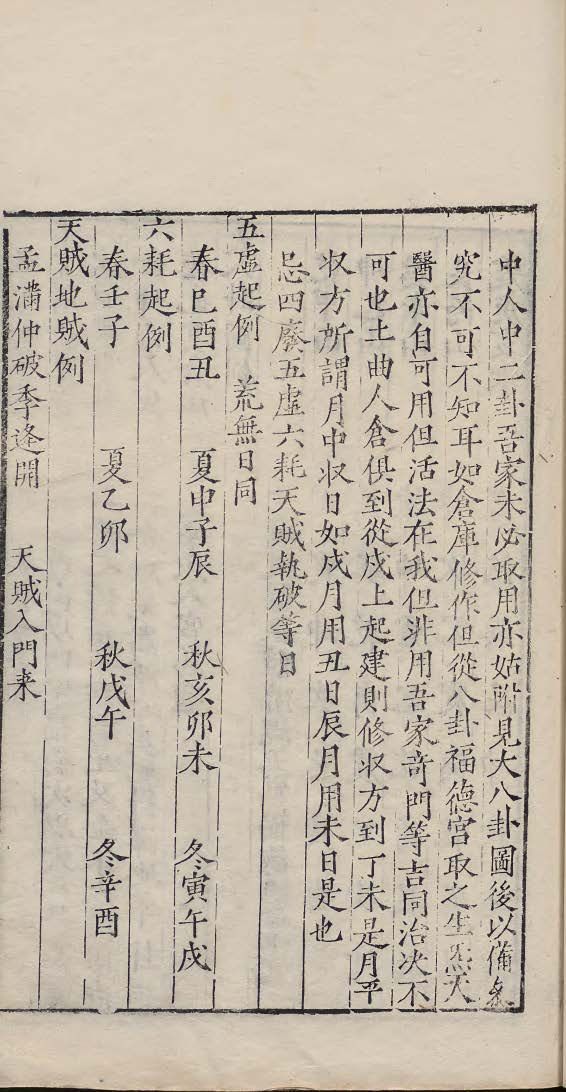 中人中二卦吾家未必取用亦姑附見大八卦圖後以備叅
究不可不知耳如倉庫修作但從八卦福德宮取之生炁天
醫亦自可用但活法在我但非用吾家竒門等吉同治决不
可也土曲人倉俱到從戍上起建則修収方到丁未是月平
収方所謂月中収日如戍月用丑日辰月用未日是也
忌四廢五虛六耗天賊執破等日
五虛起例　荒無日同
春巳酉丑　夏申子辰　秋亥卯未　冬寅午戍
六耗起例
春壬子　夏乙卯　秋戊午　冬辛酉
天賊地賊例
孟滿仲破季逢開　天賊入門来